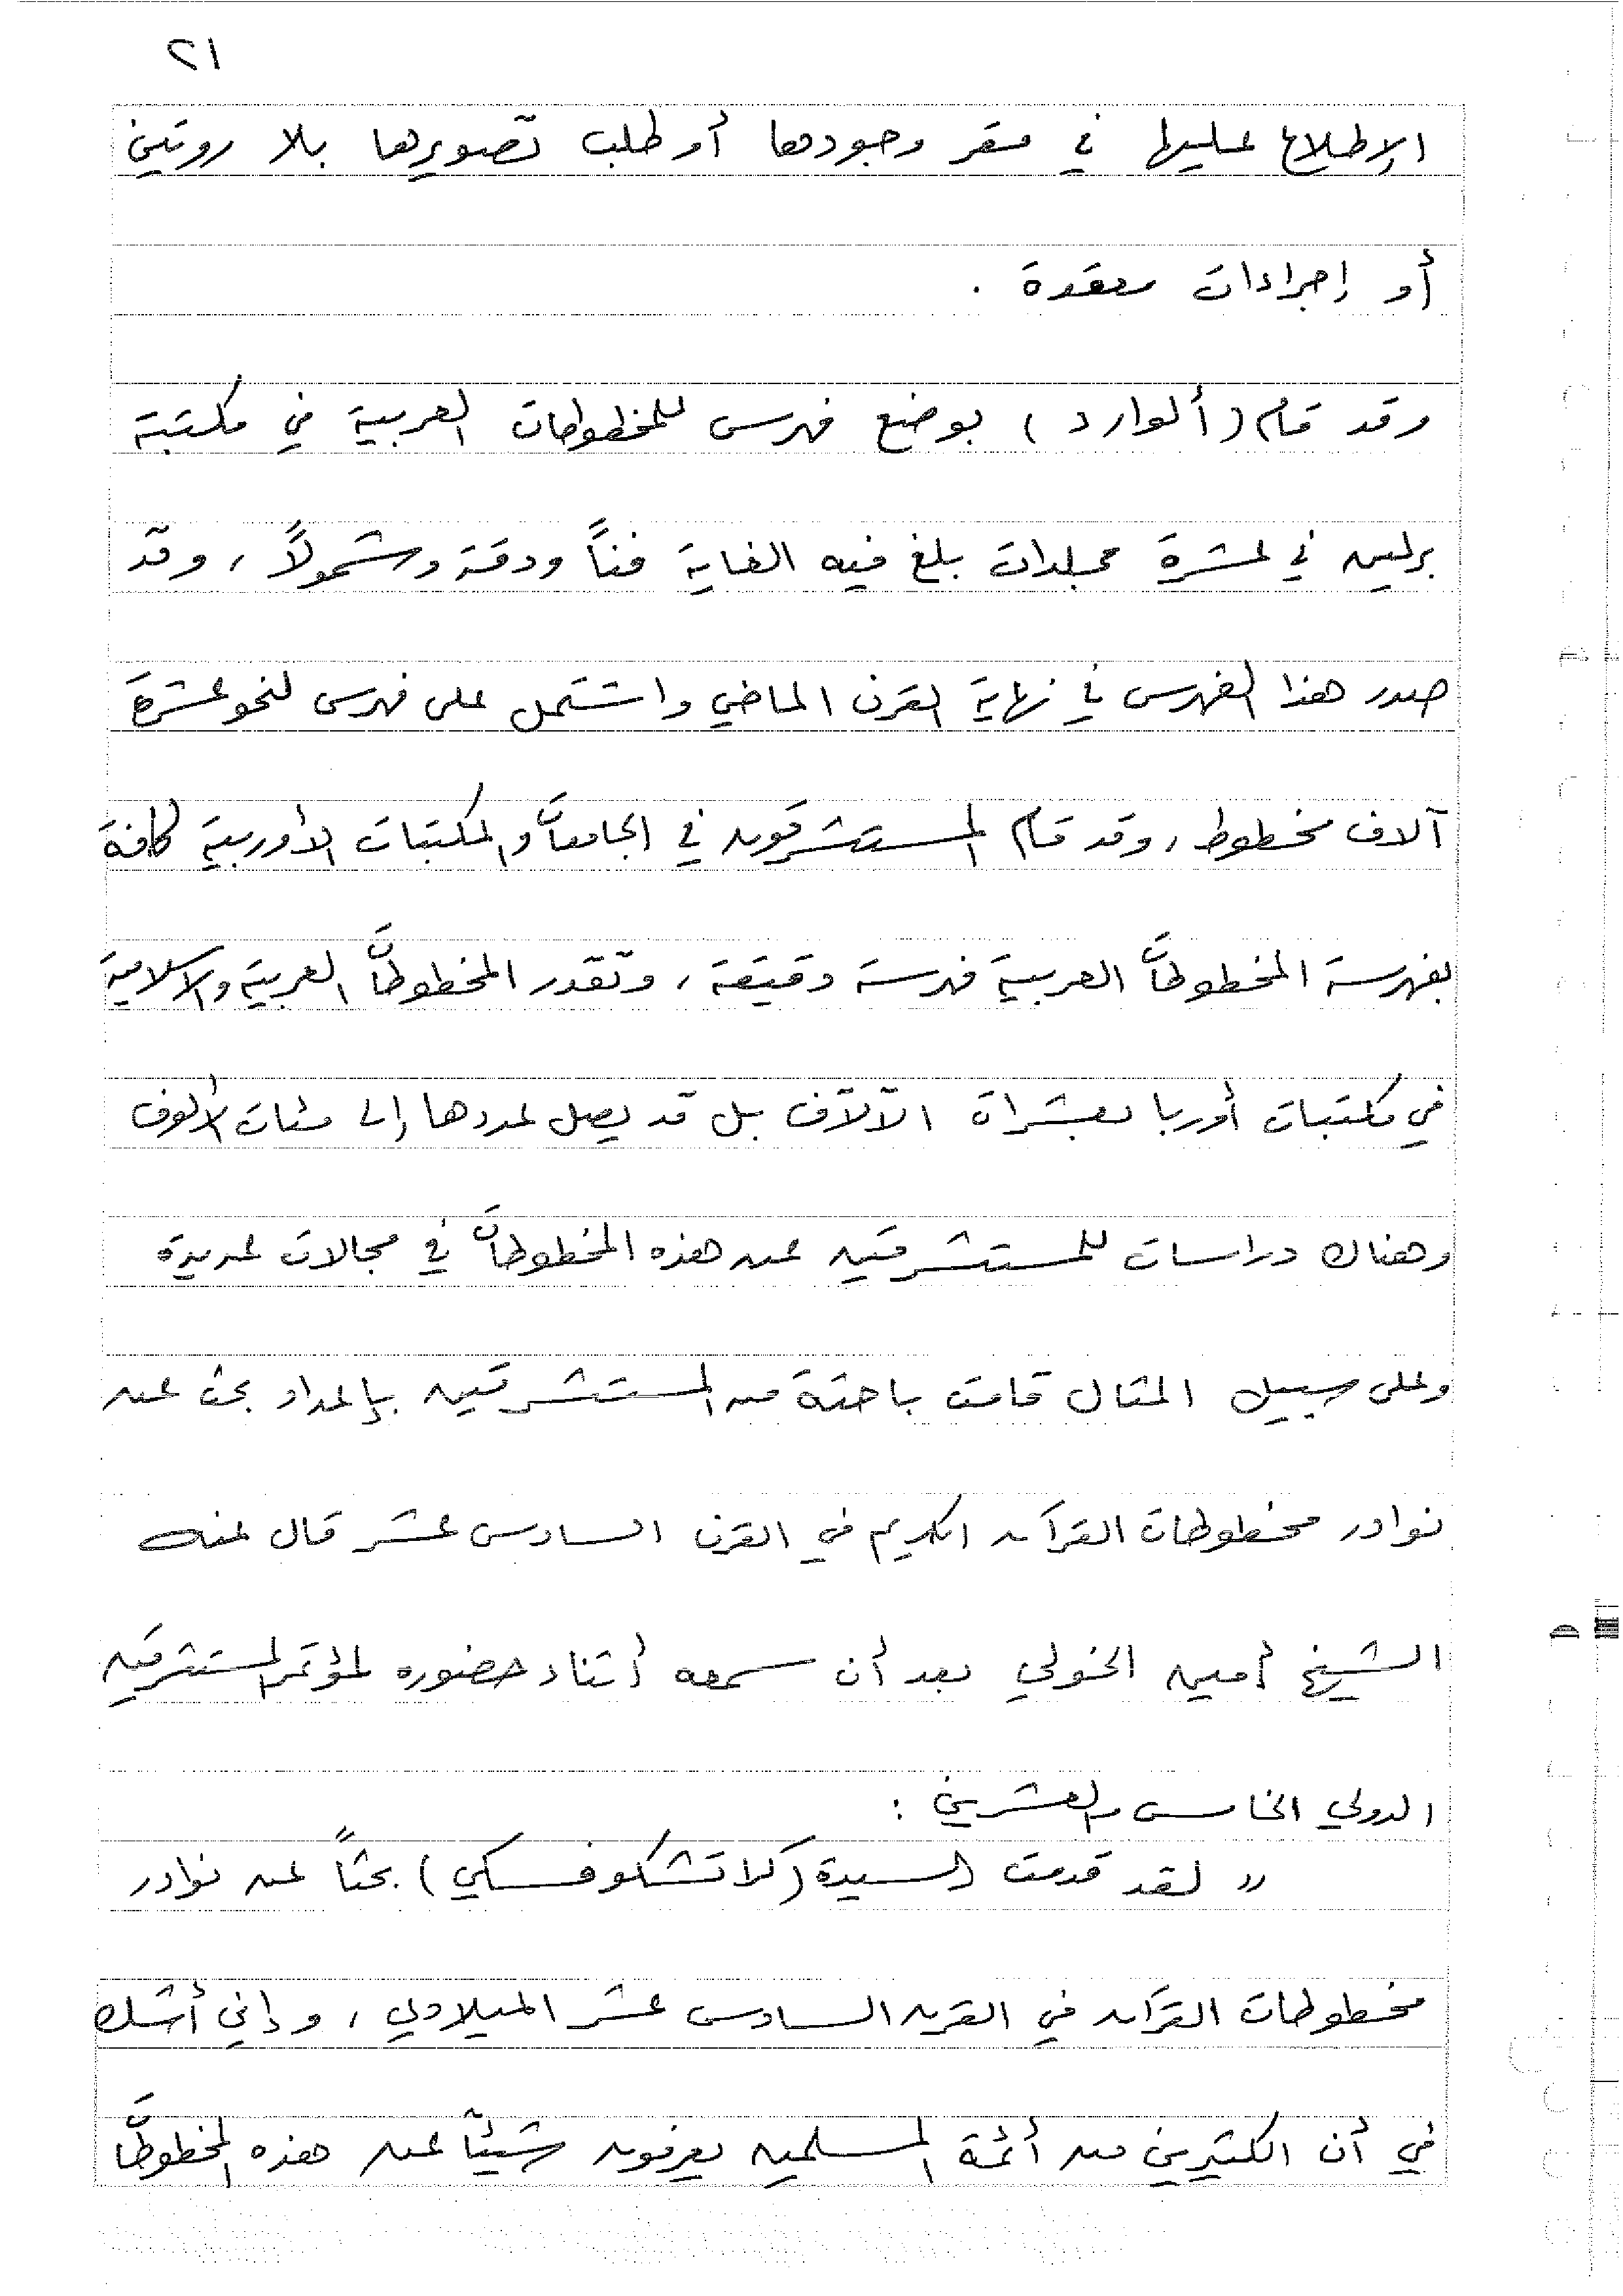 ٢١
الإطلاع عليها في مقر وجودها أو طلب تصويرها بلا روتين
أو إجراءات معقدة .
وقد قام (ألوارد) بوضع فهرس للمخطوطات العربية في مكتبة
برلين في عشرة مجلدات بلغ فيه الغاية فناً ودقة وشمولاً ، وقد
صدر هذا الفهرس في نهاية القرن الماضي واشتمل على فهرس لنحو عشرة
آلاف مخطوط ، وقد قام المستشرقون في الجامعات والمكتبات الأوربية كافة
بفهرسة المخطوطات العربية فهرسة دقيقة ، وتقدر المخطوطات العربية والإسلامية
في مكتبات أوربا بعشرات الآلآف بل قد يصل عددها إلى مئات الألوف
وهناك دراسات للمستشرقين عن هذه المخطوطات في مجالات عديدة
وعلى سبيل المثال قامت باحثة من المستشرقين بإعداد بحث عن
نوادر مخطوطات القرآن الكريم في القرن السادس عشر قال عنه
الشيخ أمين الخولي بعد أن سمعه أثناء حضوره لمؤتمر المستشرقين
الدولي الخامس والعشرين :
" لقد قدمت السيدة (كلاتشكوفسكي) بحثاً عن نوادر
مخطوطات القرآن في القرن السادس عشر الميلادي ، وإني أشك
في أن الكثيرين من أئمة المسلمين يعرفون شيئاً عن هذه المخطوطات